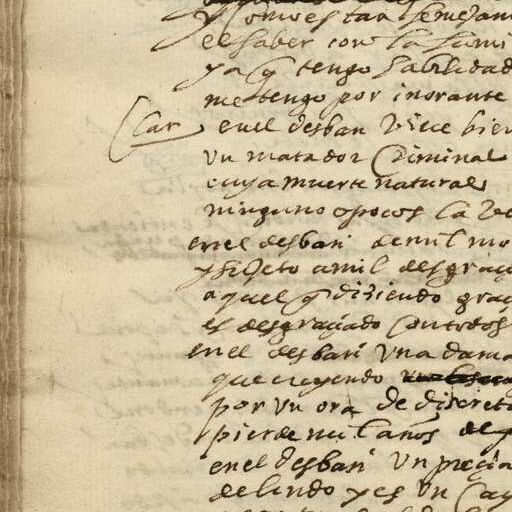 y como es tan semejan
el saber con la sum
ya q tengo sabilidad
me tengo por inorante
Clar en el desban vive bien
un matador Criminal
cuya muerte natural
ninguno o pocos la ve
en el desban de mil mo
y sujeto a mil desgraç
aquel q diziendo graç
es desgraçiado con todos
en el desban una dama
que cuyendo
por un ora de discreta
pierde mil años de
en el desban un preçia
de lindo y es un Cay